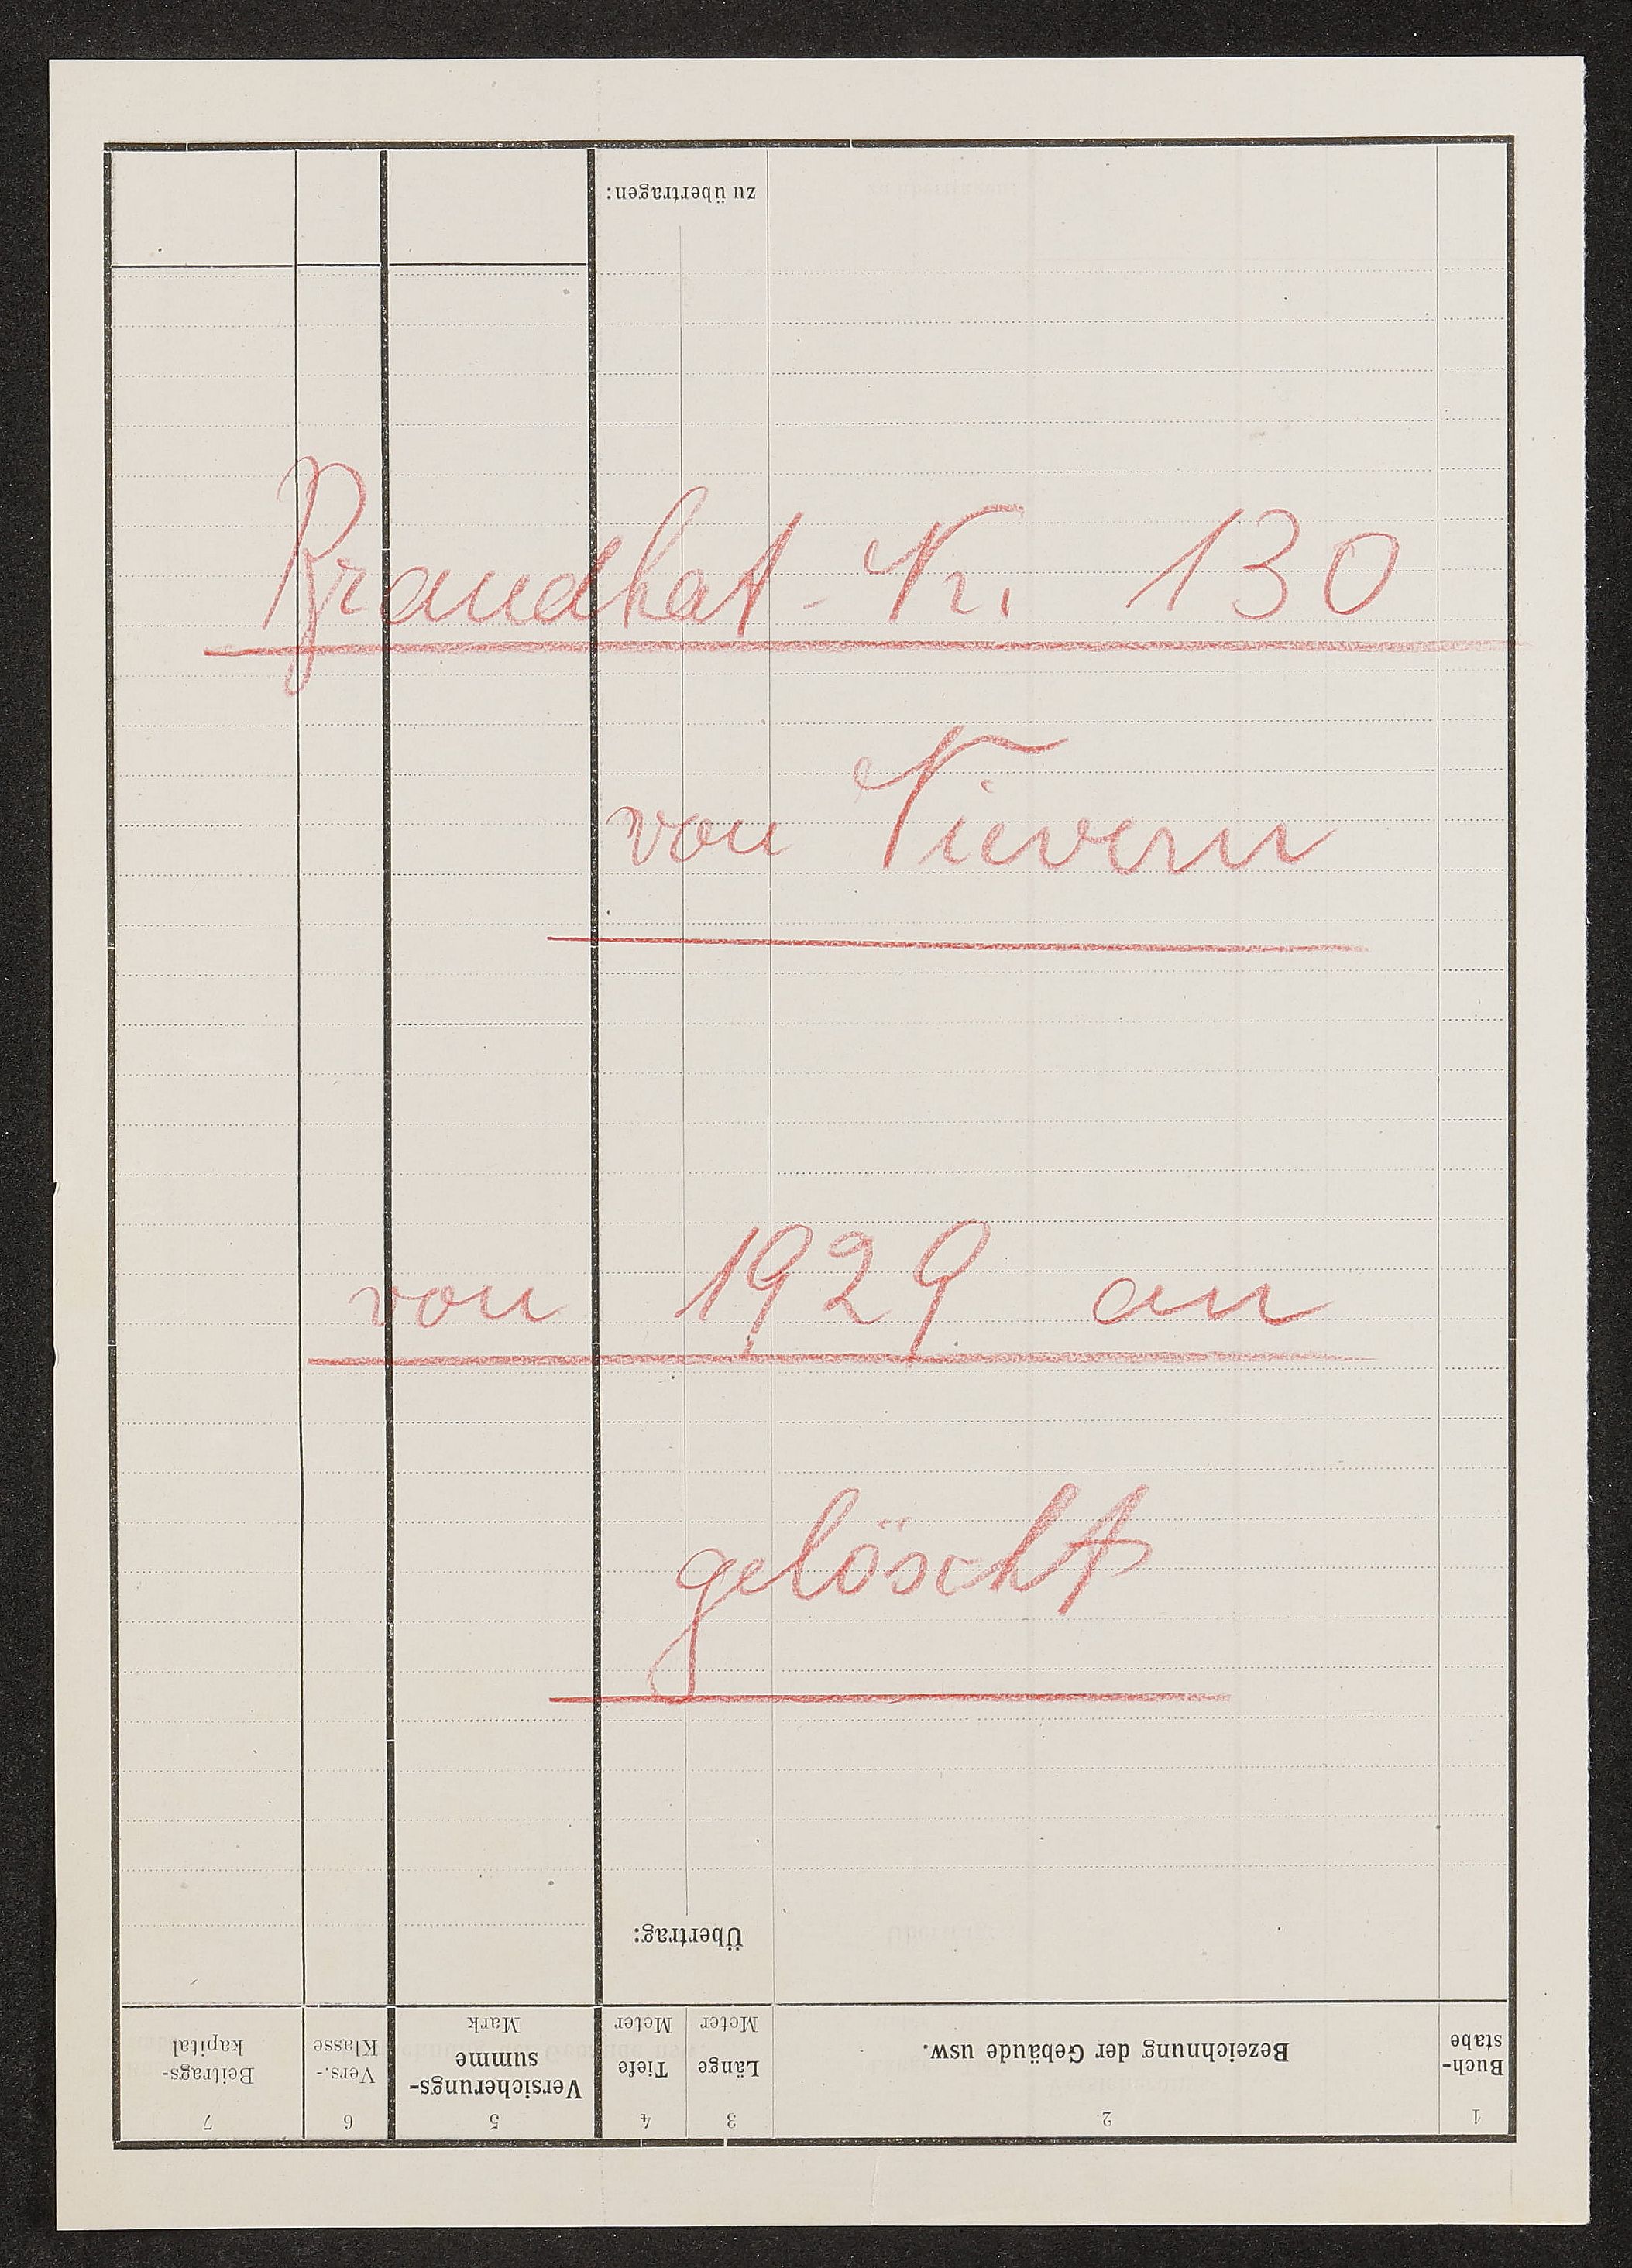 Brandkat.-Nr. 130
von Nievern
von 1929 an
gelöscht
1
2
3
4
5
6
7
Buch-
stabe
Bezeichnung der Gebäude usw.
Länge
Meter
Tiefe
Meter
Versicherungs-
summe
Mark
Vers.-
Klasse
Beitrags-
kapital
Übertrag:
zu übertragen: